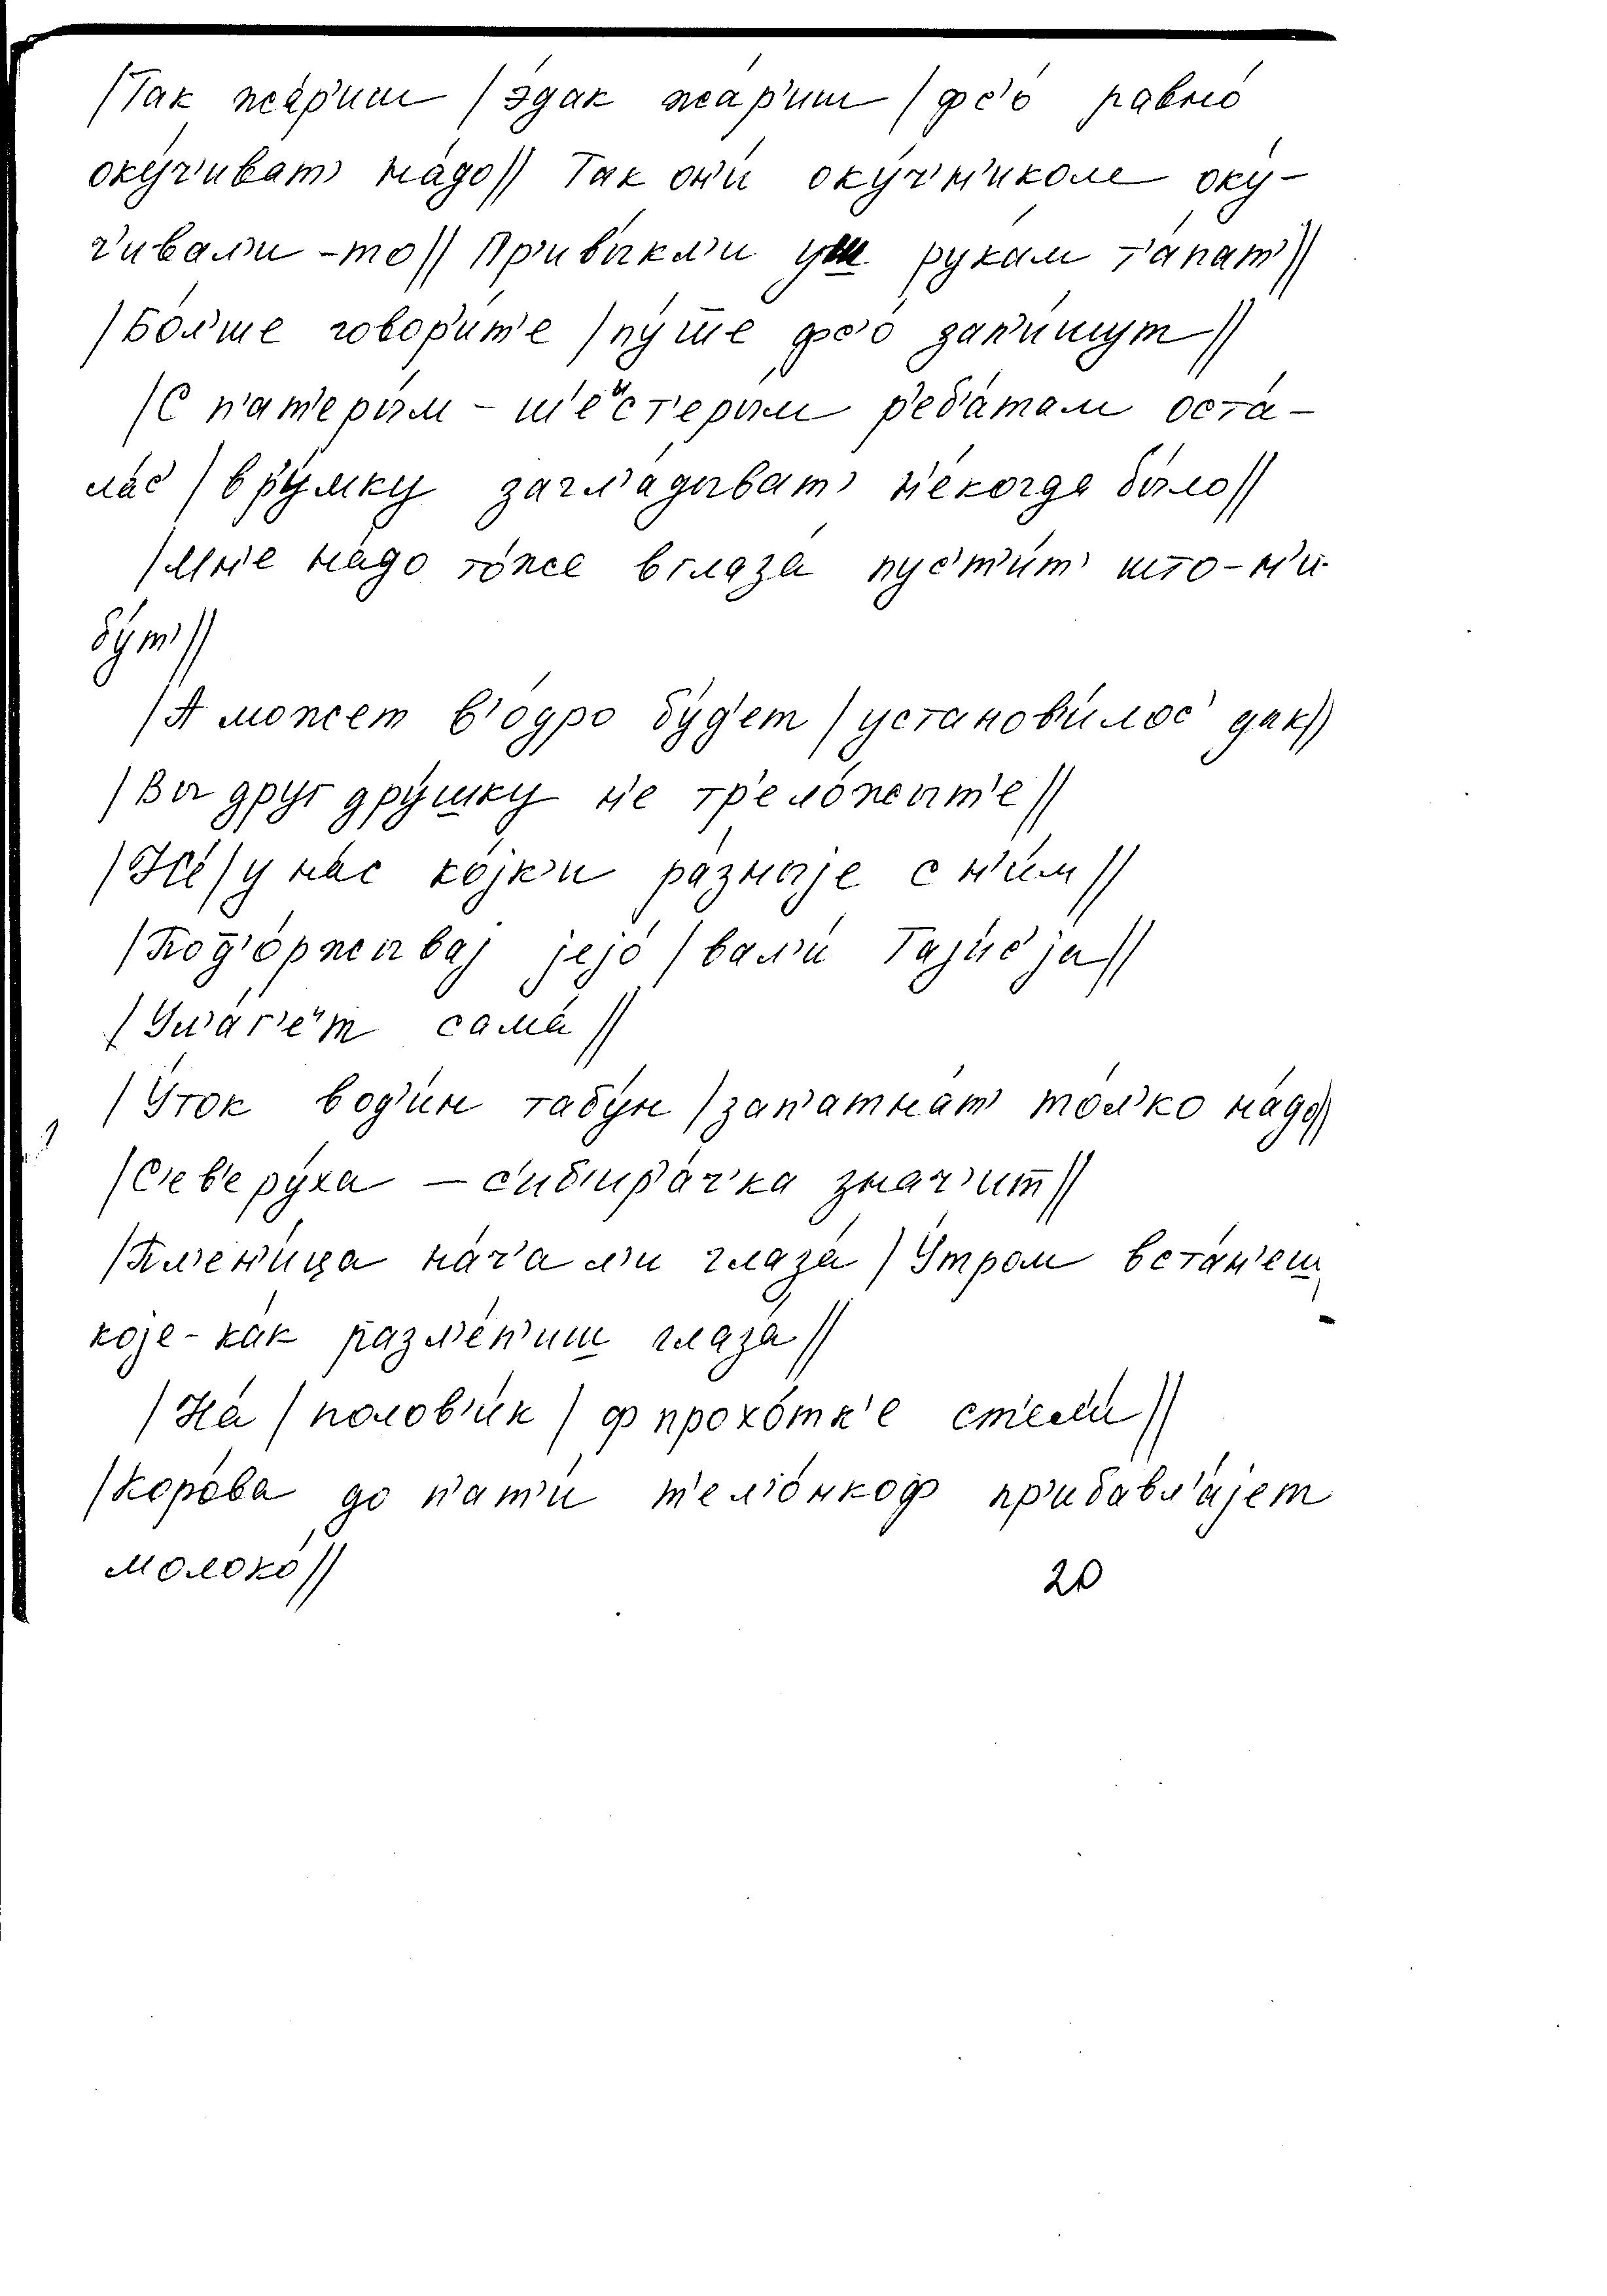 /Так жа́р'иш /э́дак жа́р'иш /фс'о́ равно́
оку́ч'иват' на́до// Так он'и́ оку́ч'н'иколе оку́-
ч'ивал'и-то// Пр'ивы́кл'и уш рука́м т'а́пат'//
/Бо́л'ше говор'и́т'е /пу́ше фс'о́ зап'и́шут//
/С п'ат'еры́м - ш'еис'т'еры́м р'еб'а́там оста-
ла́с' /в р'у́мку загл'а́дыват' н'е́когда бы́ло//
/Мн'е на́до то́же в глаза́ пус'т'и́т' што-н'и-
бу́т'//
/А может в'о́дро бу́д'ет /установ'и́лос' дак//
/Вы друг дру́шку н'е тр'ело́жыт'е//
/Не́ /у на́с ко́јк'и ра́зныје с н'и́м//
/Под'о́ржывај јејо́ /вал'и́ Тајис'ја//
/Ул'а́г'еит сама́//
/У́ток вод'и́н табу́н /зап'атна́т' то́л'ко на́до//
/С'ев'еру́ха — с'иб'ир'а́ч'ка знач'ит//
/Пл'ен'и́ца на́ч'ал'и глаза́ /У́тром вста́н'еш
које-ка́к разл'е́п'иш глаза́//
/На́ /полов'и́к /ф прохо́тк'е ст'ел'и́//
/Коро́ва до п'ат'и́ т'ел'о́нкоф пр'ибавл'а́јет
молоко́//
20